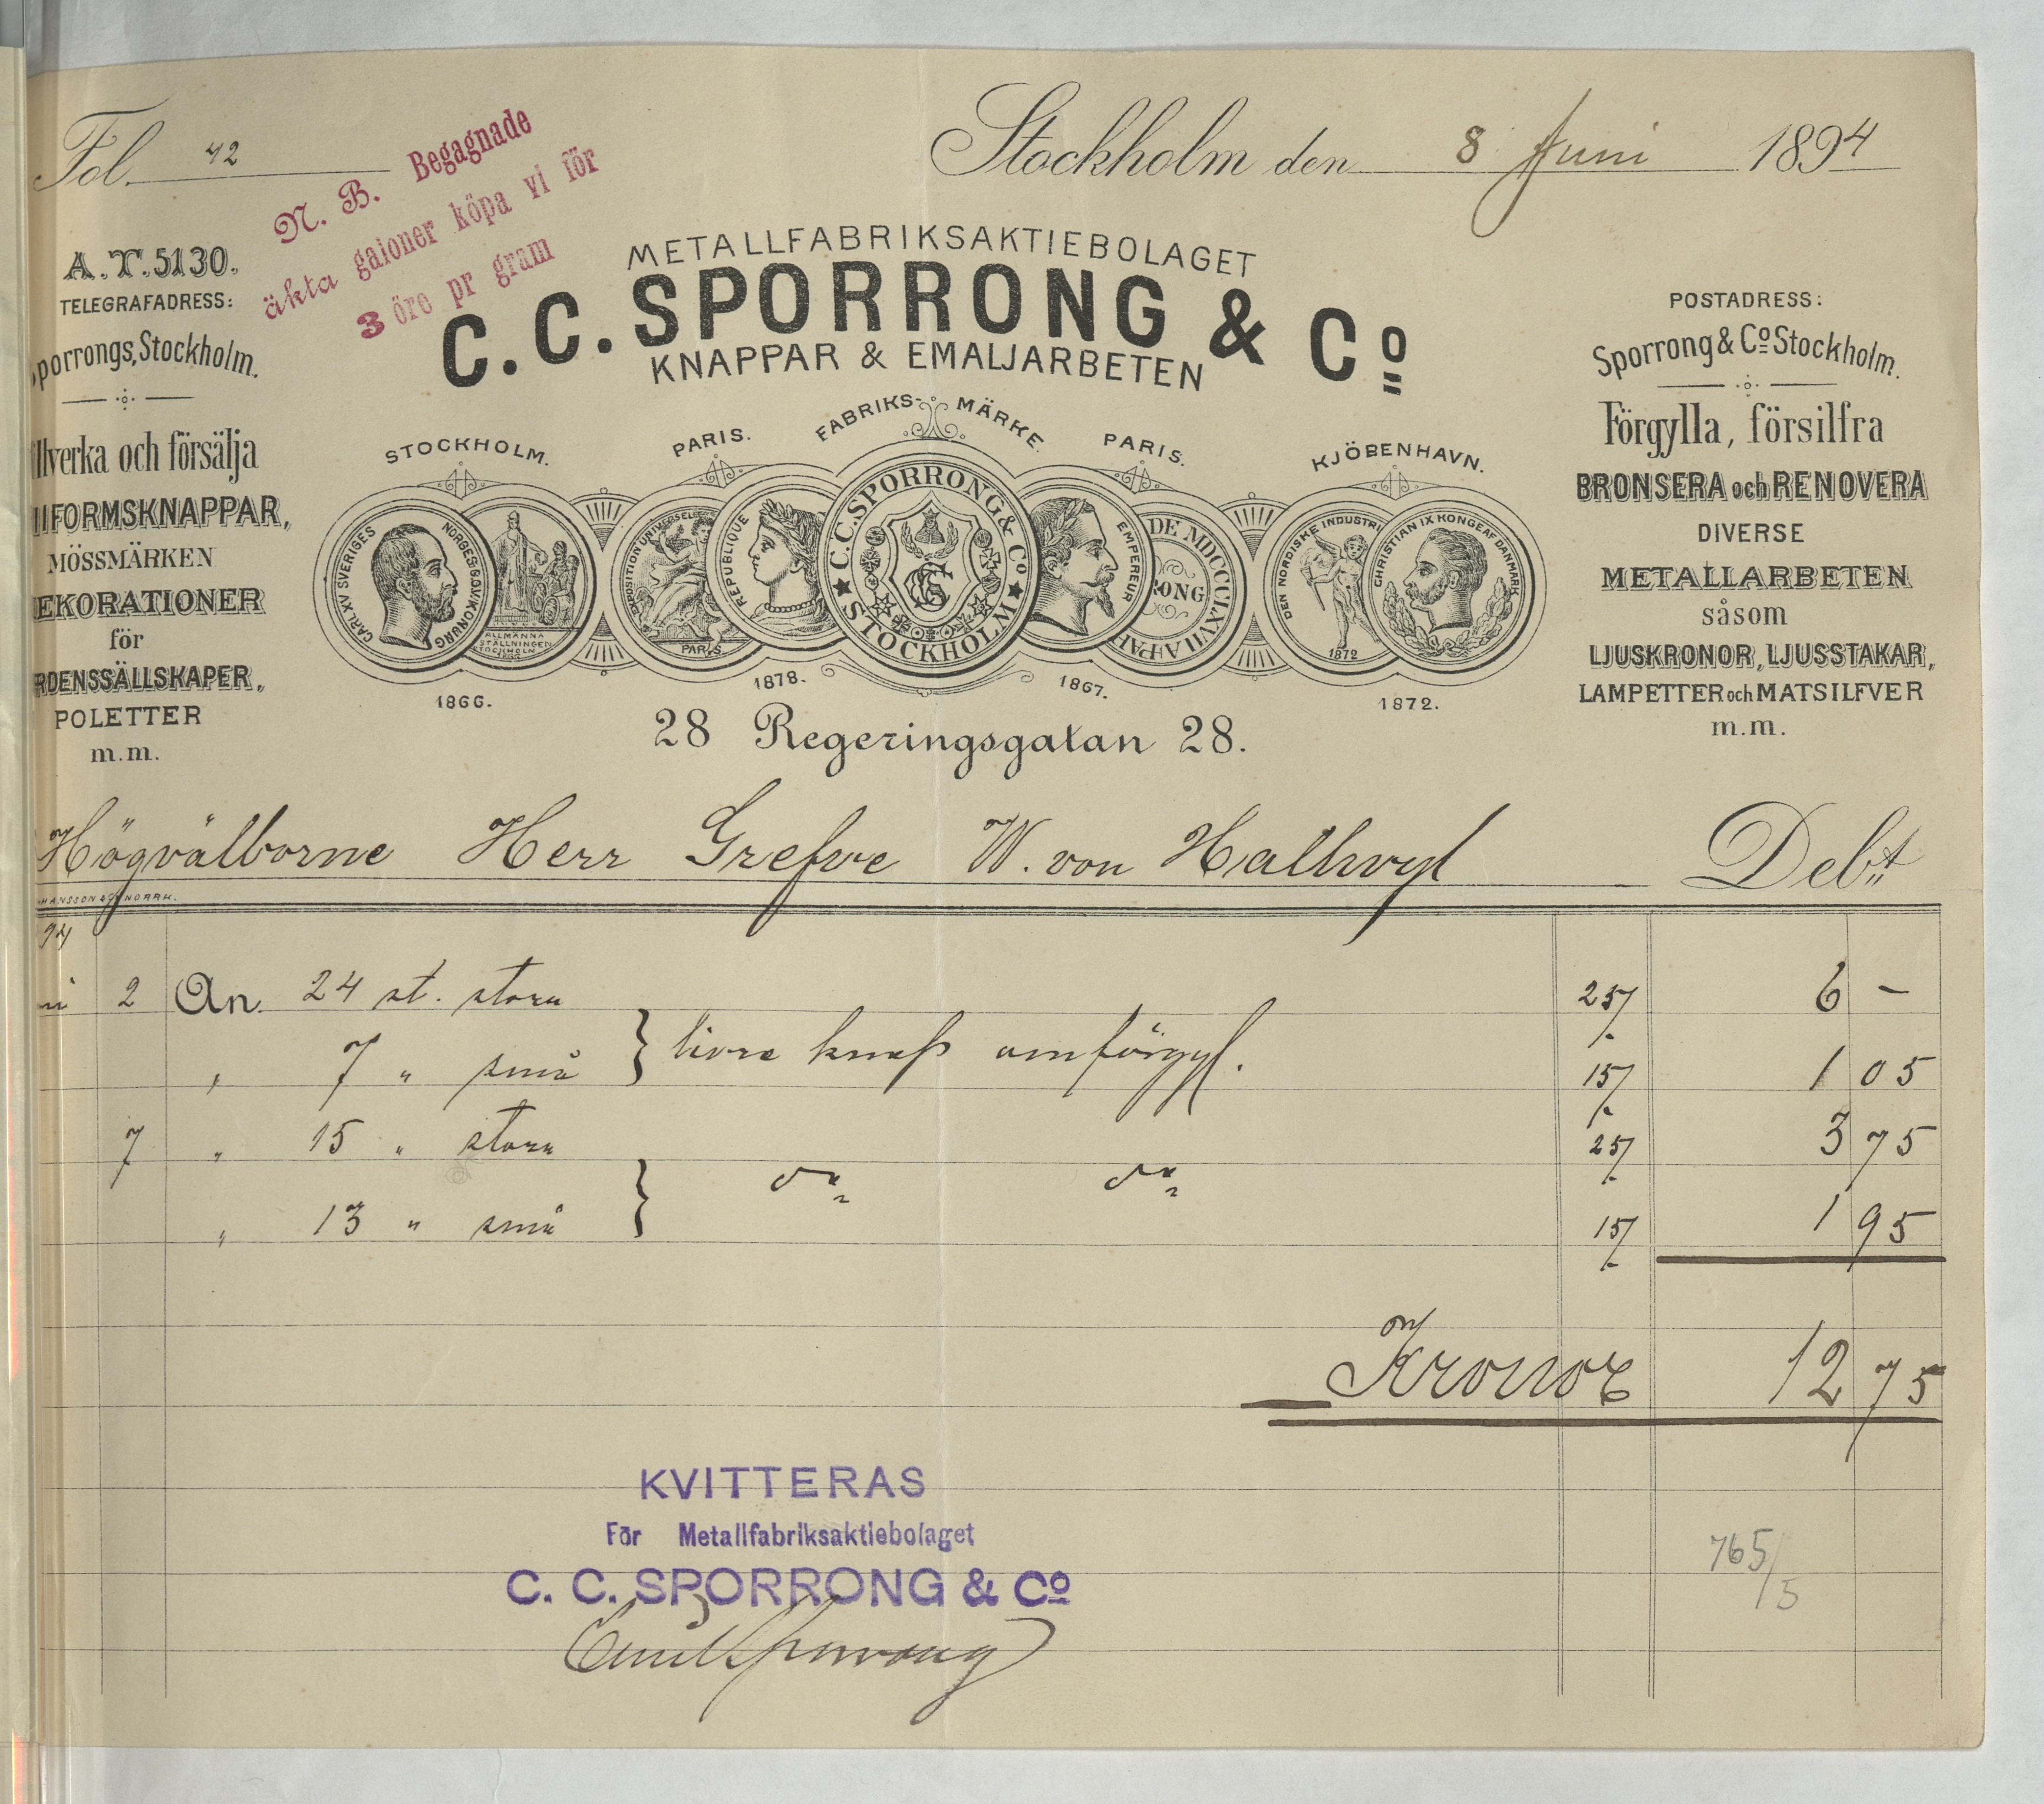 Fol. 42
Stockholm den 8 Juni 1894
N. B. Begagnade
äkta galoner köpa vi för
3 öre pr gram
A.T. 5130.
TELEGRAFADRESS:
Sporrongs, Stockholm.
llverka och försälja
IFORMSKNAPPAR,
MÖSSMÄRKEN
EKORATIONER
för
RDENSSÄLLSKAPER,
POLETTER
m.m.
METALLFABRIKSAKTIEBOLAGET
C. C. SPORRONG & Co
KNAPPAR & EMALJARBETEN
STOCKHOLM. PARIS. FABRIKS-MÄRKE. PARIS. KJÖBENHAVN.
CARL XV SVERIGES NORGES G. O. V. KONUNG
ALLMÄNNA
STÄLLNINGEN
STOCKHOLM
EXPOSITION UNIVERSELLE
PARIS
REPUBLIQUE
C.C.SPORRONG & Co STOCKHOLM
EMPEREUR
DE MDCCCLXVII A PAR
RONG
DEN NORDISKE INDUSTRI
1872
CHRISTIAN IX KONGE AF DANMARK
1866. 1878. 1867. 1872.
28 Regeringsgatan 28.
POSTADRESS:
Sporrong & Co Stockholm.
Förgylla, försilfra
BRONSERA och RENOVERA
DIVERSE
METALLARBETEN
såsom
LJUSKRONOR, LJUSSTAKAR,
LAMPETTER och MATSILFVER
m.m.
Högvälborne Herr Grefve W. von Hallwyl Debt
HANSSON & NORRK.
94
ni 2 An 24 st. stora 25/ 6 —
" 7 " små } livre knapp omförgyl. 15/ 1 05
7 " 15 " stora 25/ 3 75
" 13 " små } do do 15/ 1 95
Kronor 12 75
KVITTERAS
För Metallfabriksaktiebolaget
C. C. SPORRONG & Co
Emil Sporrong
765/5